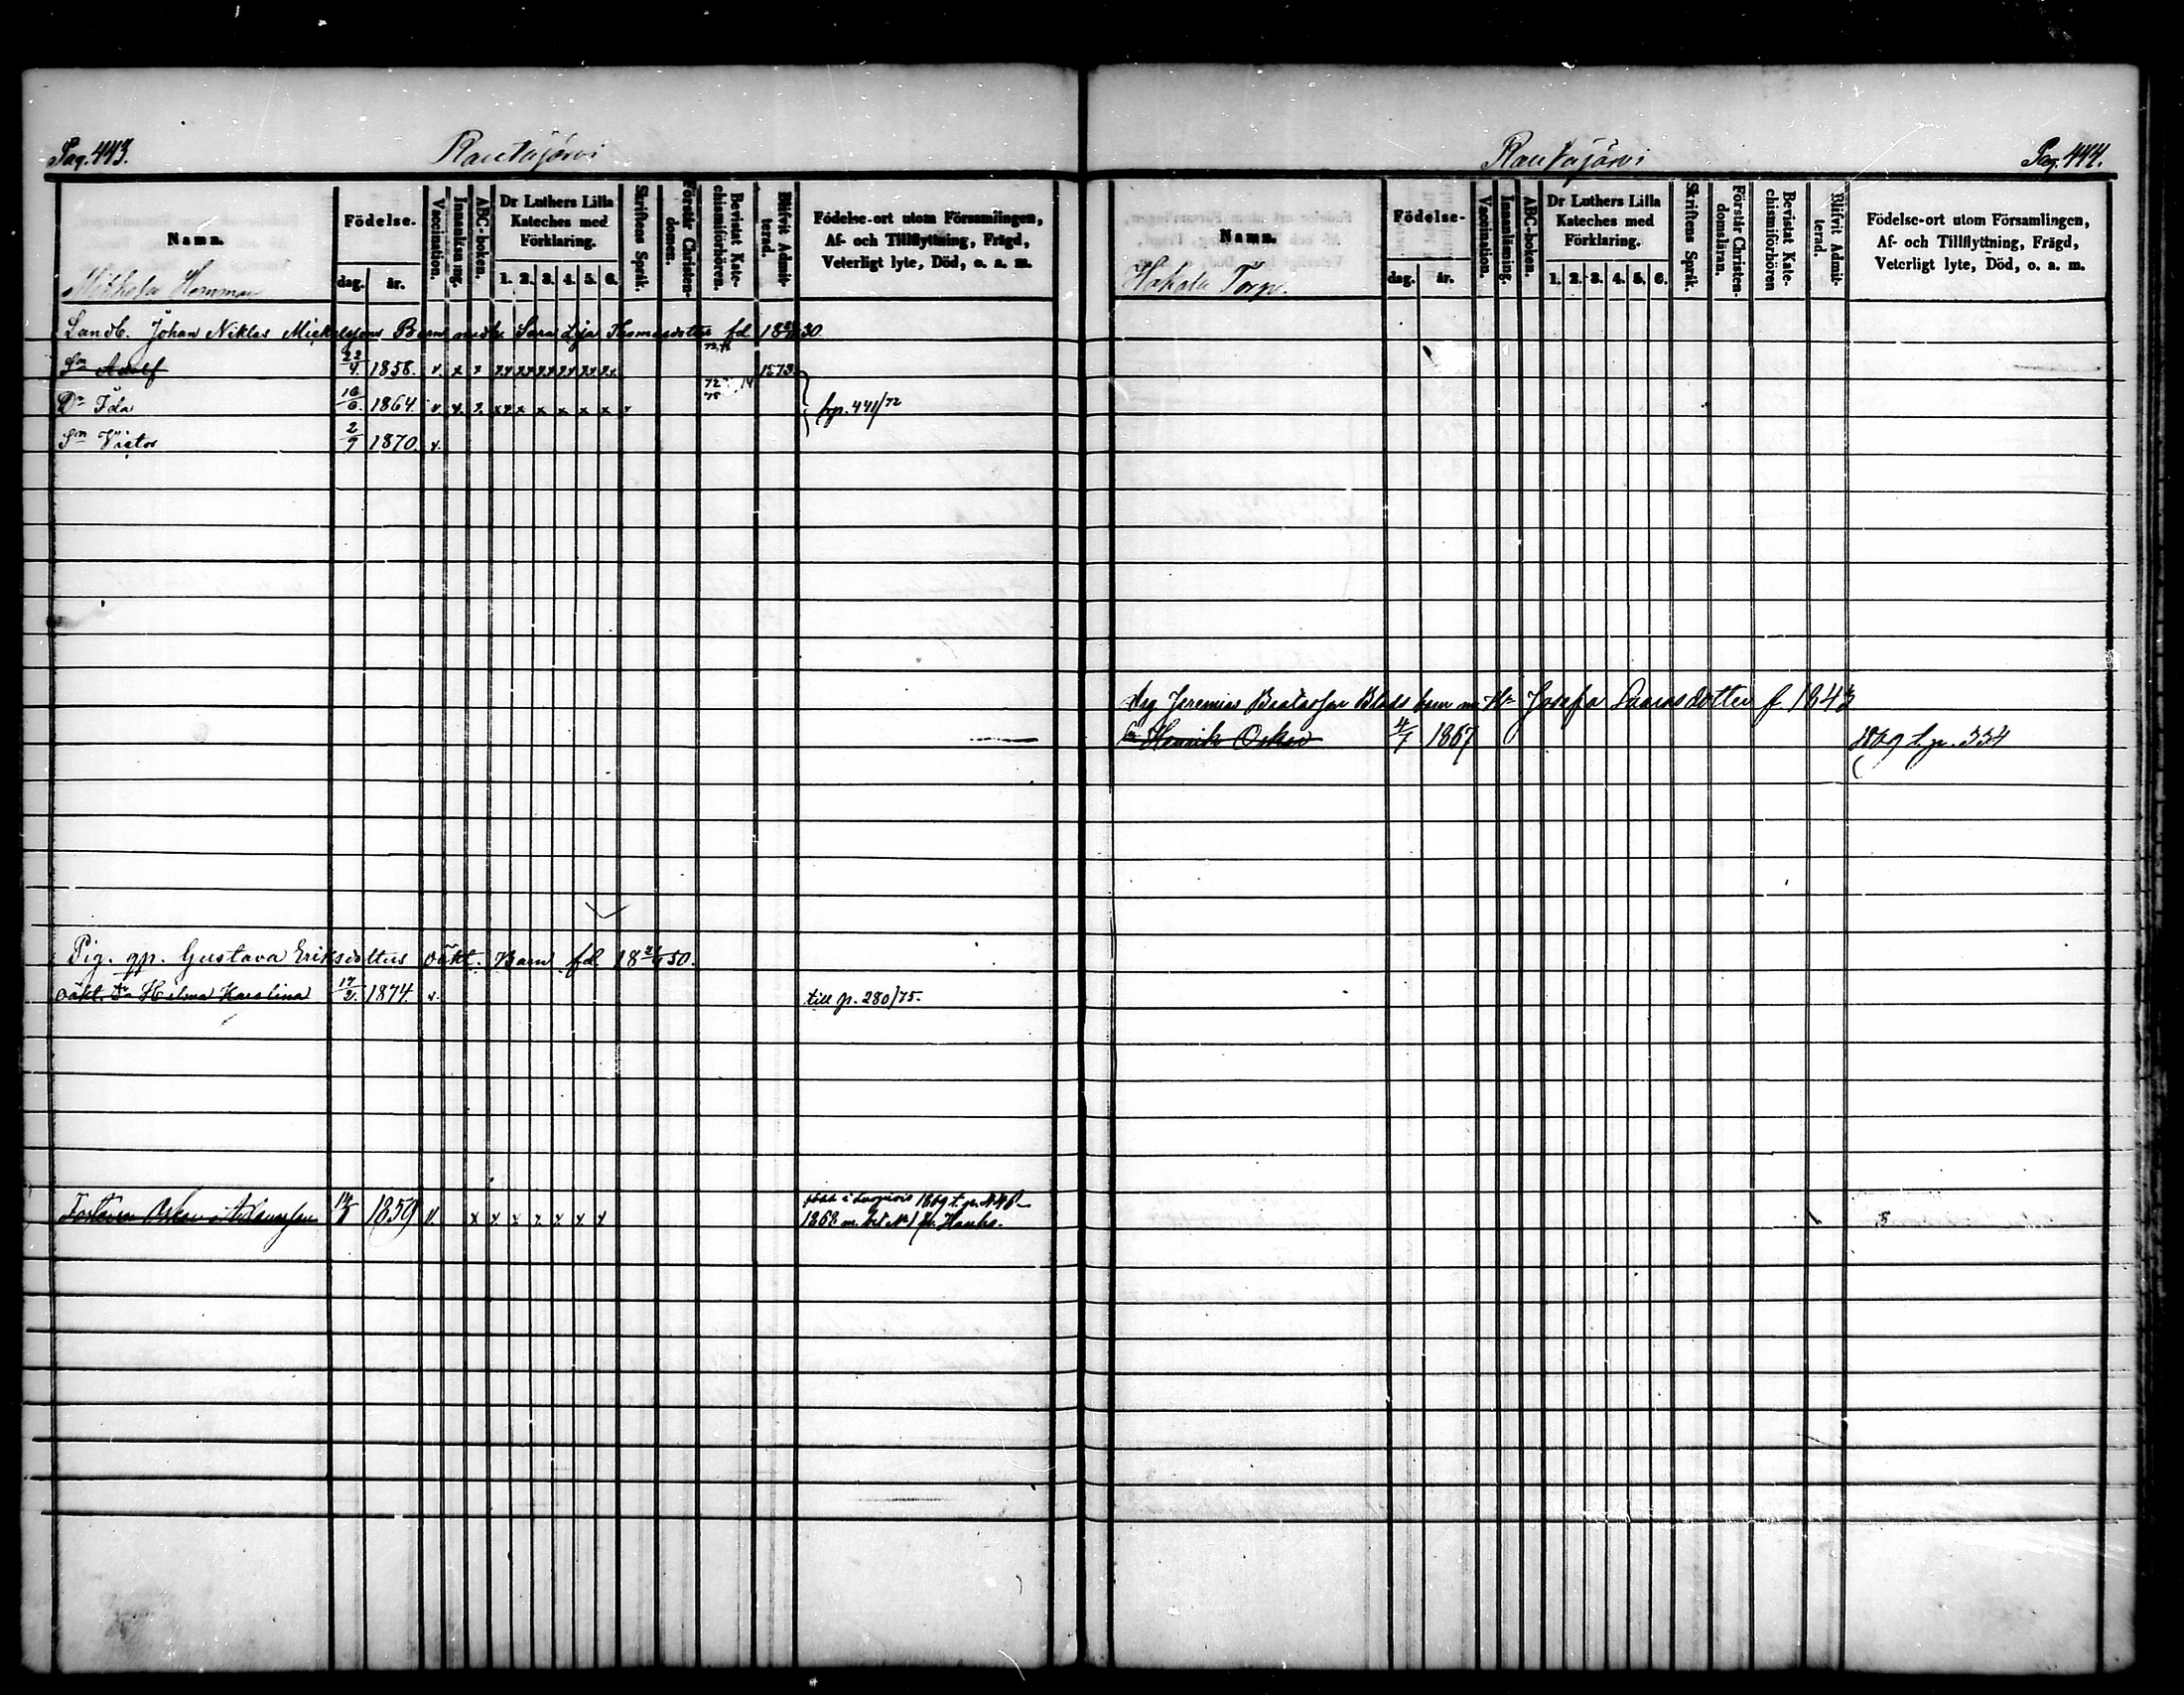 Pag. 443.
Rautajärvi
Namn.
Födelse.
dag.
år.
Vaccination.
Innanläsning.
ABC-boken.
Dr Luthers Lilla
Kateches med
Förklaring.
1. 2. 3. 4. 5. 6.
Skriftens Språk.
Förstår Christen-
domen.
Bevistat Kate-
chismiförhören.
Blifvit Admit-
terad.
Födelse-ort utom Församlingen,
Af- och Tillflyttning, Frägd,
Veterligt lyte, Död, o. a. m.
Hemman
Landb. Johan Niklas Mickelssons Barn Sara Lisa Thomasdotter fd. 30
Sn Adolf 22/4 1858. v. x x 1873.
Dr Ida 16/6. 1864. v. v. x. x x x x x x hp. 441/72
Sn Victor 2/9 1870. v.
Pig. qp. Gustava Eriksdotters oäkt. Barn fd. 50.
oäkt. Dr Hilma Karolina 17/2. 1874. v. till p. 280/75.
Oskar 14/8 1859 v. x x x x x x x 1869 t. p.
1868 m. bet No 1 fr. Hauho.
Pag. 444.
Rautajärvi
Namn.
Födelse-
dag.
år.
Vaccination.
Innanläsning.
ABC-boken.
Dr Luthers Lilla
Kateches med
Förklaring.
1. 2. 3. 4. 5. 6.
Skriftens Språk.
Förstår Christen-
domsläran.
Bevistat Kate-
chismiförhören
Blifvit Admit-
terad.
Födelse-ort utom Församlingen,
Af- och Tillflyttning, Frägd,
Veterligt lyte, Död, o. a. m.
Hahala Torp.
Jeremias barn m. Hu Josefa f 1843
Sn Henrik Oskar 4/7 1867 1869 t. p. 334